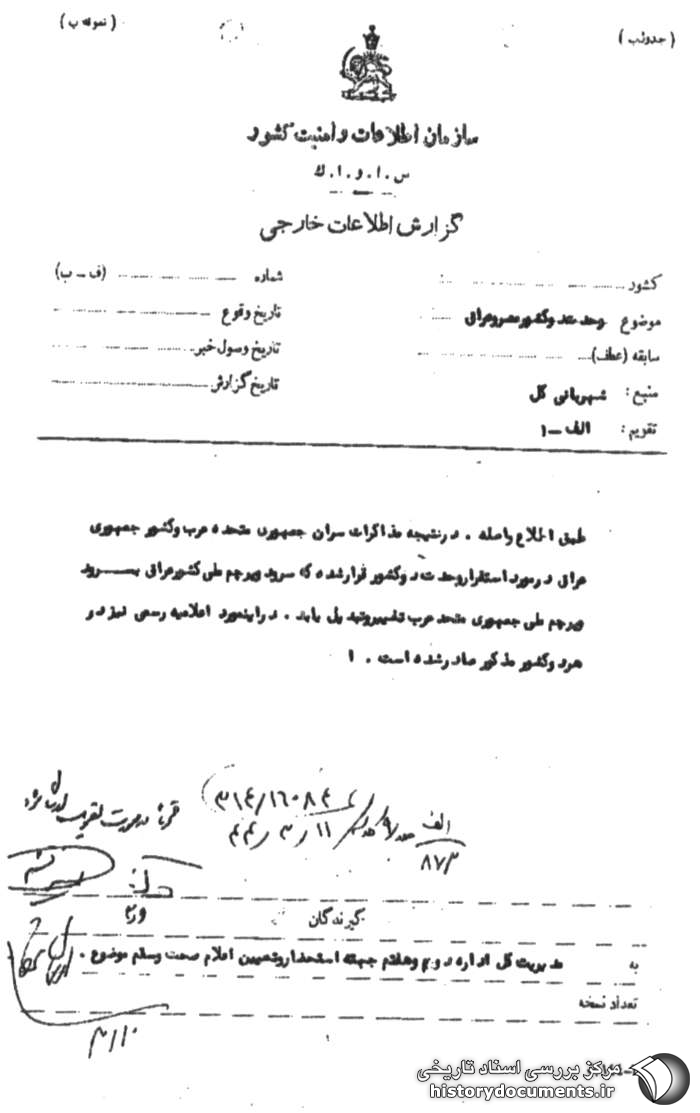 (جدول ب) (نمونه ب)
سازمان اطلاعات و امنیت کشور
س . ا . و . ا . ك
گزارش اطلاعات خارجی
کشور
شماره (ف - ب)
موضوع وحدت دو کشور مصر و عراق
تاریخ وقوع
سابقه (عطف)
تاریخ وصول خبر
منبع : شهربانی کل
تاریخ گزارش
تقویم : الف - ۱
طبق اطلاع واصله . در نتیجه مذاکرات سران جمهوری متحده عرب و کشور جمهوری
عراق در مورد استقرار وحدت دو کشور قرار شده که سرود و پرچم ملی کشور عراق بسرود
و پرچم ملی جمهوری متحده عرب تغییر و تبدیل یابد . در اینمورد اعلامیه رسمی نیز در
هر دو کشور مذکور صادر شده است . ۱
۳۱۴/۱۶۰۸۴
۴۴/۳/۱۱
الف
۸۷۳
گیرندگان
به مدیریت کل اداره دوم و هفتم جهته استحضار و تعیین اعلام صحت و سقم موضوع .
تعداد نسخه
۳/۱۰
مرکز بررسی اسناد تاریخی
historydocuments.ir